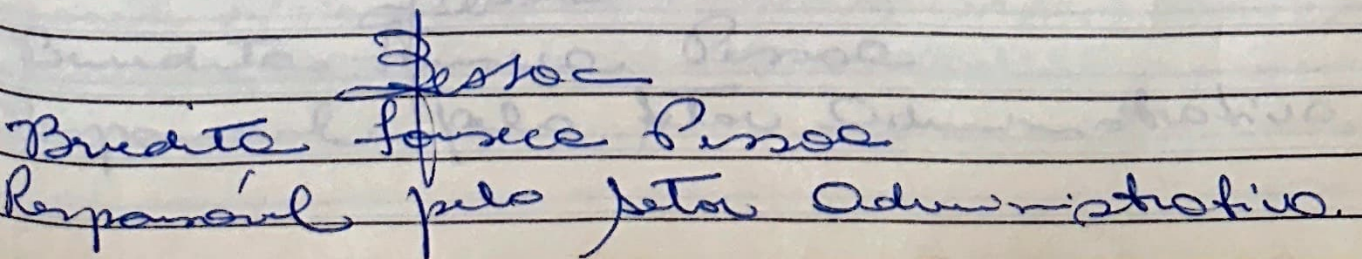 Pessoa
Benedita Fonseca Pessoa
Responsável pelo setor Administrativo.